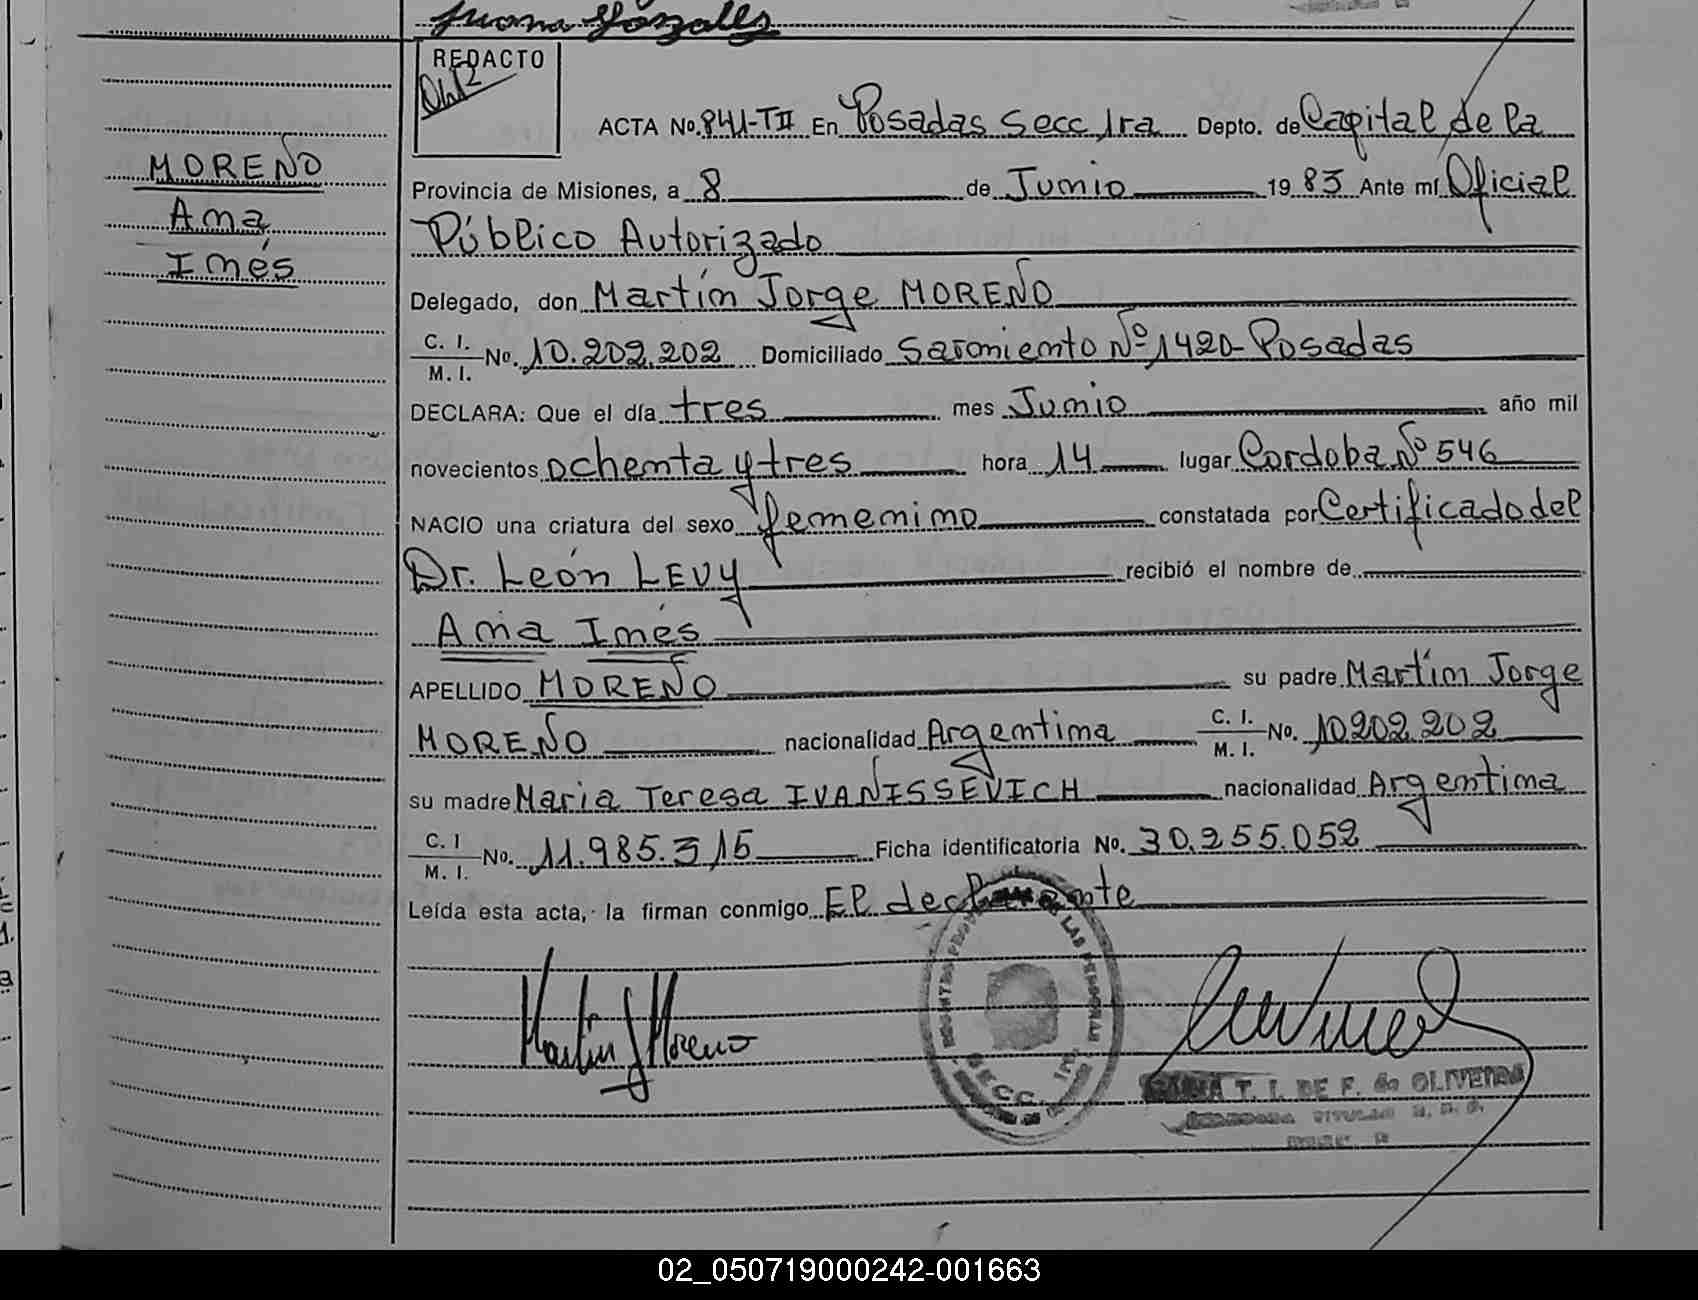 Juana Gonzales
REDACTO
ACTA No. 841-TII En Posadas Secc 1ra Depto. de Capital de la
MORENO
Provincia de Misiones, a 8 de Junio 1983 Ante mí Oficial
Ana
Público Autorizado
Inés
Delegado, don Martín Jorge MORENO
C. I.
M. I. No. 10.202.202 Domiciliado Sarmiento Nº 1420-Posadas
DECLARA: Que el día tres mes Junio año mil
novecientos ochenta y tres hora 14 lugar Cordoba Nº 546
NACIO una criatura del sexo femenino constatada por Certificado del
Dr. León LEVY recibió el nombre de
Ana Inés
APELLIDO MORENO su padre Martín Jorge
MORENO nacionalidad Argentina C. I. M. I. No. 10.202.202
su madre Maria Teresa IVANISSEVICH nacionalidad Argentina
C. I
M. I. No. 11.985.315 Ficha identificatoria No. 30.255.052
Leída esta acta, la firman conmigo El declarante
Martin J Moreno
LAS PERSONAS
SECC. 1ra.
T. I. DE F. de OLIVEIRA
TITULAR
02_050719000242-001663